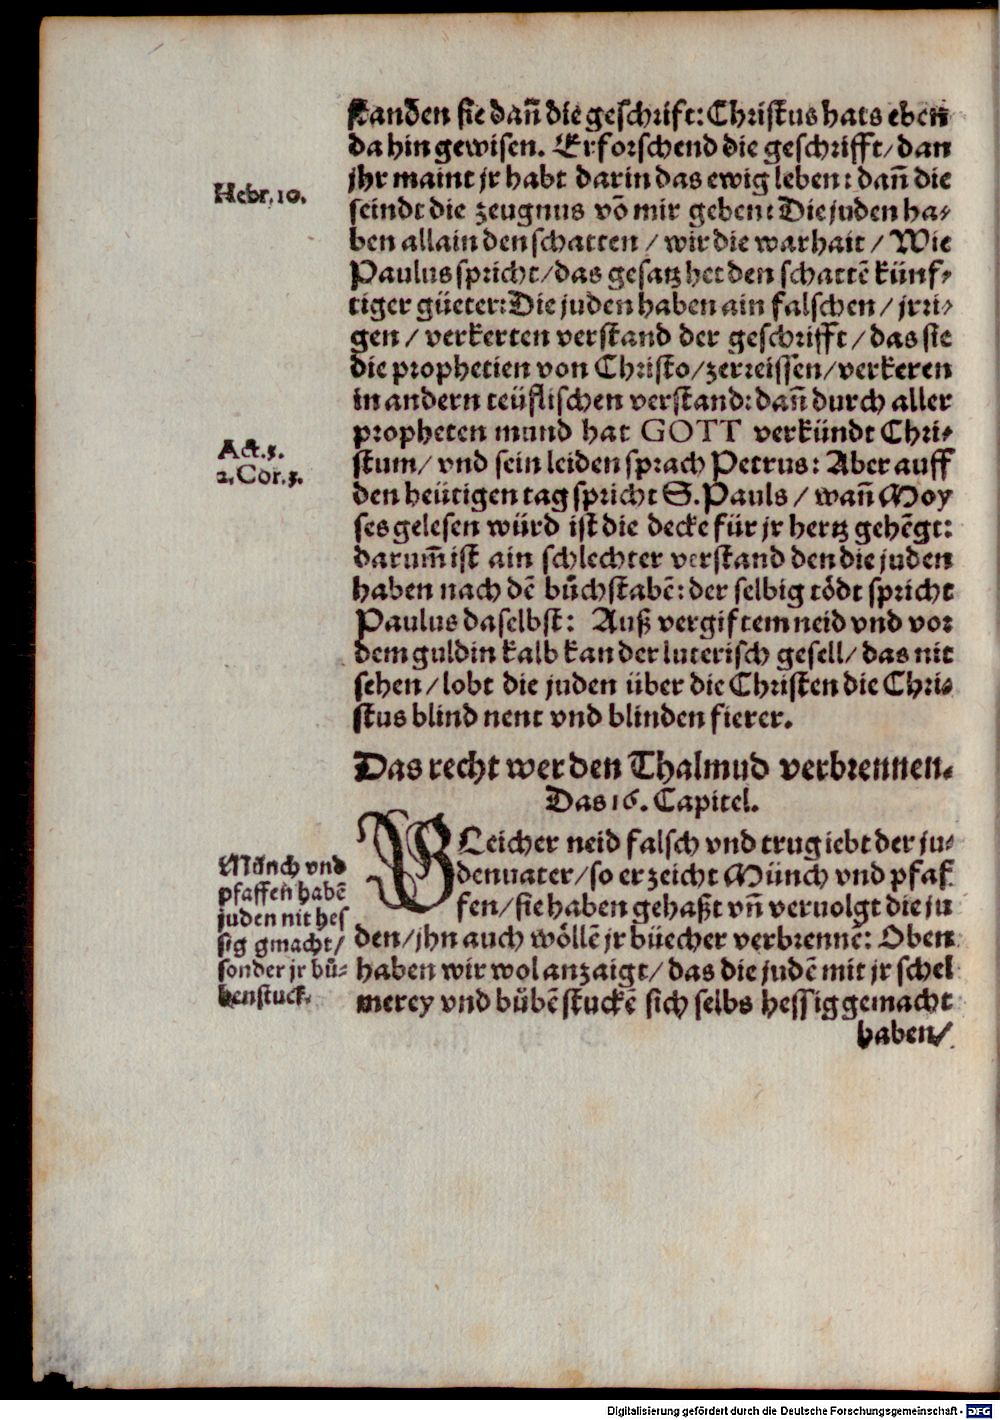 standen sie dañ die geschrift: Christus hats eben
da hin gewisen. Erforschend die geschrifft/ dan
jhr maint jr habt darin das ewig leben: dañ die
Hebr. 10.
seindt die zeugnus võ mir geben: Die juden ha-
ben allain den schatten / wir die warhait / Wie
Paulus spricht/ das gesatz het den schattẽ künf-
tiger güeter: Die juden haben ain falschen / jrri-
gen / verkerten verstand der geschrifft / das sie
die prophetien von Christo/ zerreissen/ verkeren
in andern teüflischen verstand: dañ durch aller
propheten mund hat GOTT verkündt Chri-
Act. 3.
2. Cor. 3.
stum/ vnd sein leiden sprach Petrus: Aber auff
den heütigen tag spricht S. Pauls / wañ Moy
ses gelesen würd ist die decke für jr hertz gehẽgt:
darum̃ ist ain schlechter verstand den die juden
haben nach dẽ bůchstabẽ: der selbig tödt spricht
Paulus daselbst: Auß vergiftem neid vnd vor
dem guldin kalb kan der luterisch gesell/ das nit
sehen / lobt die juden über die Christen die Chri-
stus blind nent vnd blinden fierer.
Das recht wer den Thalmud verbrennen.
Das 16. Capitel.
GLeicher neid falsch vnd trug iebt der ju-
denuater/ so er zeicht Münch vnd pfaf
fen/ sie haben gehaßt vñ veruolgt die ju
den/ jhn auch wöllẽ jr büecher verbrennẽ: Oben
haben wir wol anzaigt/ das die judẽ mit jr schel
merey vnd bůbẽ stuckẽ sich selbs hessig gemacht
Münch vnd
pfaffen habẽ
juden nit hes
sig gmacht/
sonder jr bů-
benstuck.
haben/
Digitalisierung gefördert durch die Deutsche Forschungsgemeinschaft - DFG